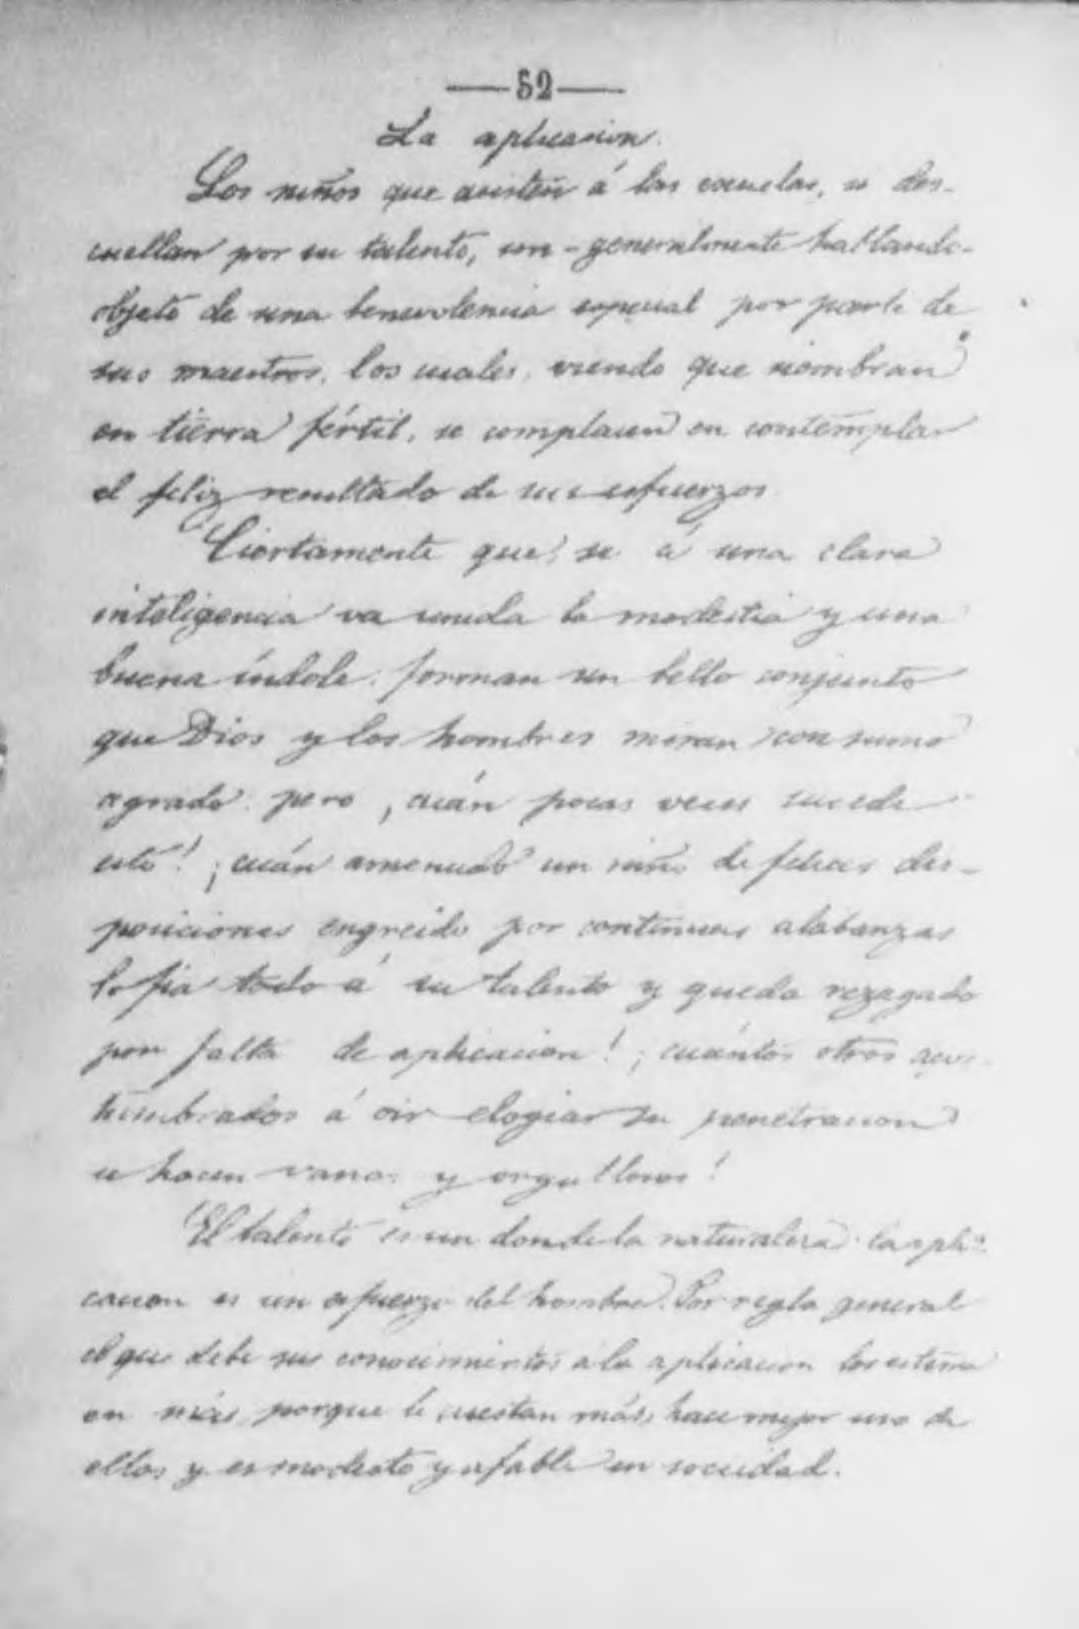 —52—
La aplicacion.
Los niños que asisten á las escuelas, si des-
cuellan por su talento, son - generalmente hablando -
objeto de una benevolencia especial por parte de
sus maestros, los cuales, viendo que siembran
en tierra fértil, se complacen en contemplar
el feliz resultado de sus esfuerzos.
Ciertamente que, si á una clara
inteligencia va unida la modestia y una
buena índole, forman un bello conjunto
que Dios y los hombres miran con sumo
agrado: pero ¡cuán pocas veces sucede
esto! ¡cuán amenudo un niño de felices dis-
posiciones engreido por continuas alabanzas
lo fia todo á su talento y queda rezagado
por falta de aplicacion! ¡cuántos otros acos-
tumbrados á oir elogiar su penetracion
se hacen vanos y orgullosos!
El talento es un don de la naturaleza: la apli-
cacion es un esfuerzo del hombre. Por regla general
el que debe sus conocimientos á la aplicacion los estima
en más, porque le cuestan más, hace mejor uso de
ellos y es modesto y afable en sociedad.